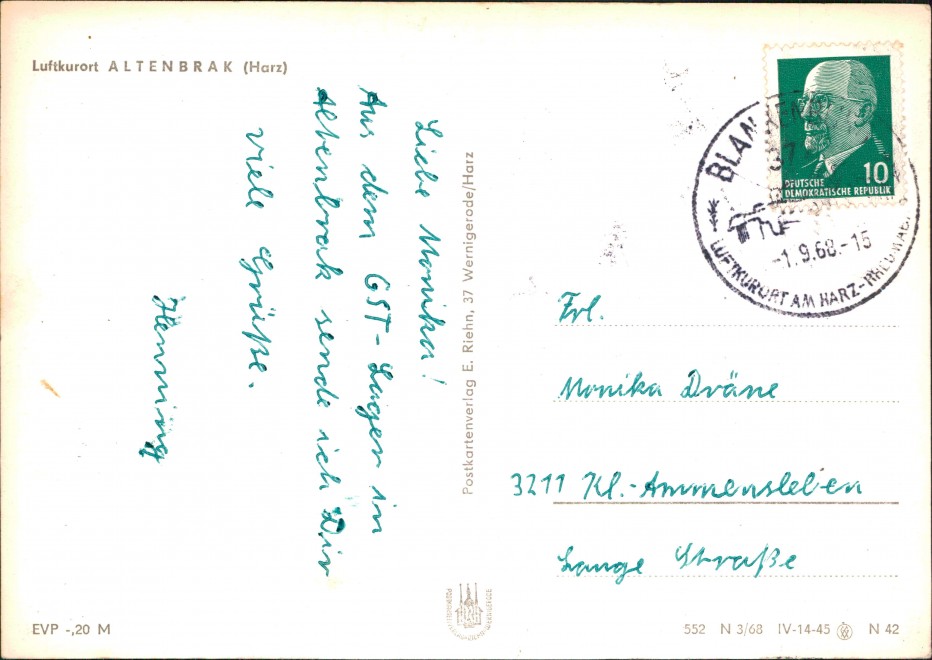 Luftkurort ALTENBRAK (Harz)
Liebe Monika!
Aus dem GST-Lager in
Altenbrak sende ich Dir
viele Grüße.
Henning
Postkartenverlag E. Riehn, 37 Wernigerode/Harz
10
DEUTSCHE
DEMOKRATISCHE REPUBLIK
-1.9.68.-15
LUFTKURORT AM HARZ-
Frl.
Monika Dräne
3211 Kl.-Ammensleben
Lange Straße
EVP -,20 M
552 N 3/68 IV-14-45 N 42